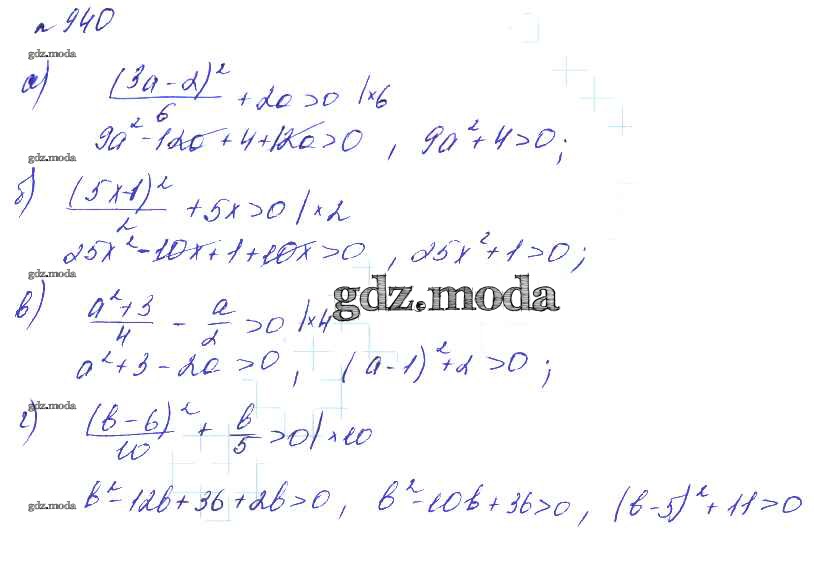 № 940
gdz.moda
а) (3a-2)²/6 + 2a > 0 |×6
9a² - 12a + 4 + 12a > 0 , 9a² + 4 > 0;
gdz.moda
б) (5x-1)²/2 + 5x > 0 |×2
25x² - 10x + 1 + 10x > 0 , 25x² + 1 > 0;
gdz.moda
в) a²+3/4 - a/2 > 0 |×4
gdz.moda
a² + 3 - 2a > 0 , (a-1)² + 2 > 0;
gdz.moda
г) (b-6)²/10 + b/5 > 0 |×10
b² - 12b + 36 + 2b > 0 , b² - 10b + 36 > 0 , (b-5)² + 11 > 0
gdz.moda